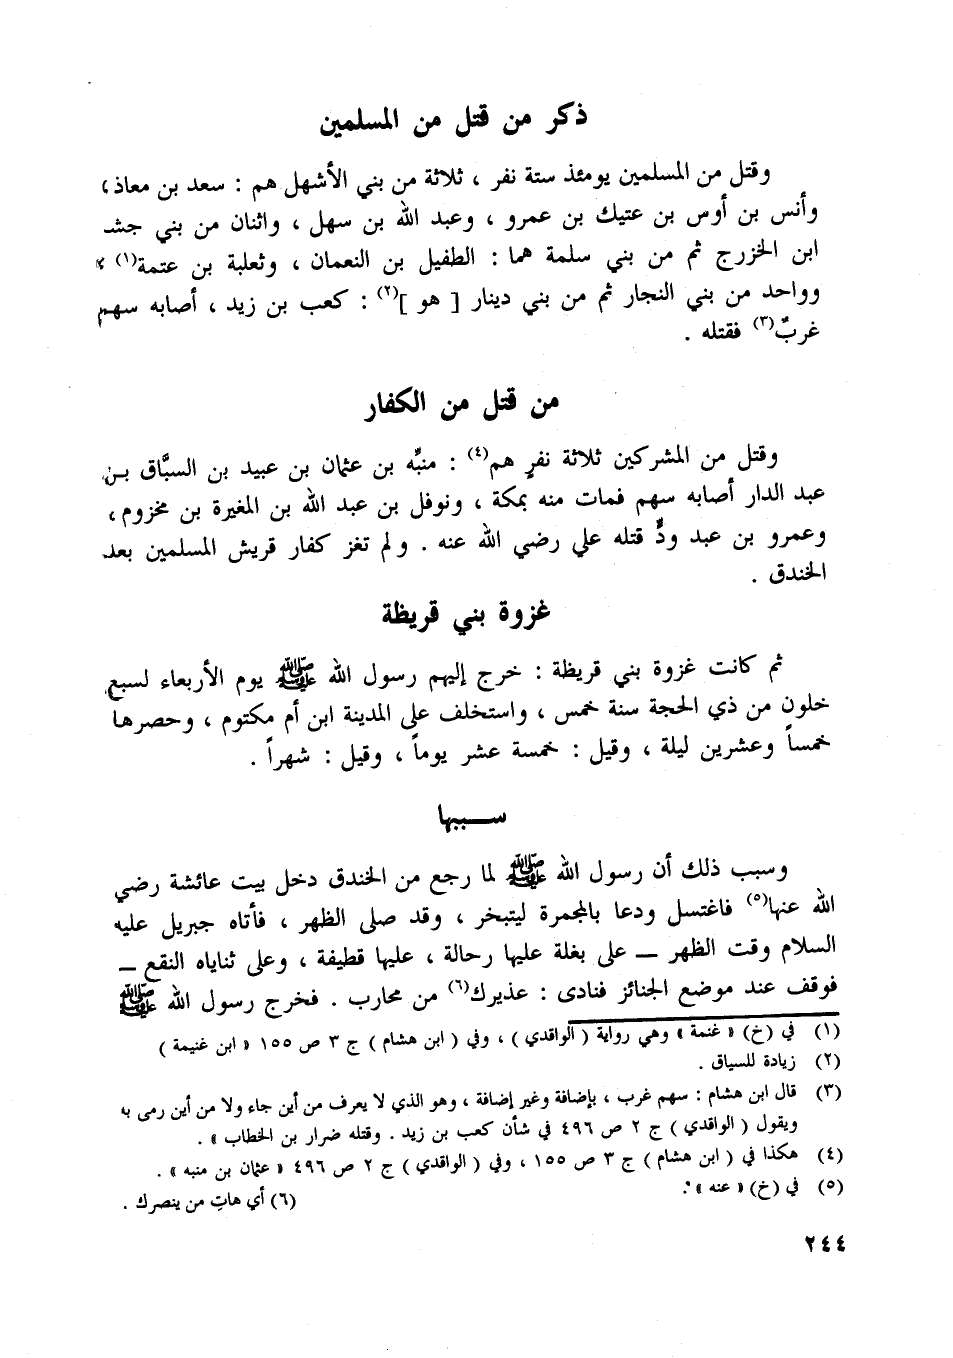 ذكر من قتل من المسلمين
وقتل من المسلمين يومئذ ستة نفر ، ثلاثة من بني الأشهل هم : سعد بن معاذ ،
وأنس بن أوس بن عتيك بن عمرو ، وعبد الله بن سهل ، واثنان من بني جشم
ابن الخزرج ثم من بني سلمة هما : الطفيل بن النعمان ، وثعلبة بن عتمة(١) ،
وواحد من بني النجار ثم من بني دينار [ هو ](٢) : كعب بن زيد ، أصابه سهم
غربٌ(٣) فقتله .
من قتل من الكفار
وقتل من المشركين ثلاثة نفرٍ هم(٤) : منبِّه بن عثمان بن عبيد بن السبَّاق بن
عبد الدار أصابه سهم فمات منه بمكة ، ونوفل بن عبد الله بن المغيرة بن مخزوم ،
وعمرو بن عبد ودٍّ قتله علي رضي الله عنه . ولم تغز كفار قريش المسلمين بعد
الخندق .
غزوة بني قريظة
ثم كانت غزوة بني قريظة : خرج إليهم رسول الله ﷺ يوم الأربعاء لسبع
خلون من ذي الحجة سنة خمس ، واستخلف على المدينة ابن أم مكتوم ، وحصرها
خمساً وعشرين ليلة ، وقيل : خمسة عشر يوماً ، وقيل : شهراً .
ســببها
وسبب ذلك أن رسول الله ﷺ لما رجع من الخندق دخل بيت عائشة رضي
الله عنها(٥) فاغتسل ودعا بالمجمرة ليتبخر ، وقد صلى الظهر ، فأتاه جبريل عليه
السلام وقت الظهر — على بغلة عليها رحالة ، عليها قطيفة ، وعلى ثناياه النقع —
فوقف عند موضع الجنائز فنادى : عذيرك(٦) من محارب . فخرج رسول الله ﷺ
(١) في (خ) « غنمة » وهي رواية ( الواقدي ) ، وفي ( ابن هشام ) ج ٣ ص ١٥٥ « ابن غنيمة )
(٢) زيادة للسياق .
(٣) قال ابن هشام : سهم غرب ، بإضافة وغير إضافة ، وهو الذي لا يعرف من أين جاء ولا من أين رمى به
ويقول ( الواقدي ) ج ٢ ص ٤٩٦ في شأن كعب بن زيد . وقتله ضرار بن الخطاب » .
(٤) هكذا في ( ابن هشام ) ج ٣ ص ١٥٥ ، وفي ( الواقدي ) ج ٢ ص ٤٩٦ « عثمان بن منبه » .
(٥) في (خ) « عنه » . (٦) أي هاتِ من ينصرك .
٢٤٤